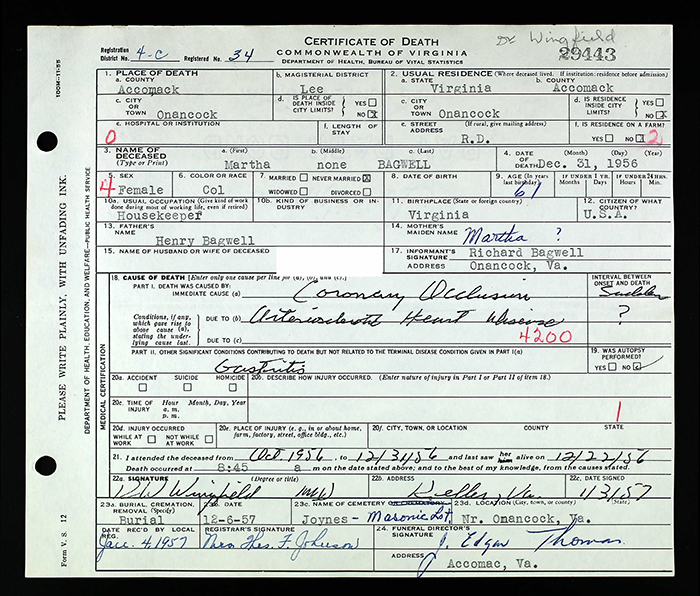 Dr Wingfield
CERTIFICATE OF DEATH
29443
COMMONWEALTH OF VIRGINIA
DEPARTMENT OF HEALTH, BUREAU OF VITAL STATISTICS
Registration District No. 4-C Registered No. 34
100M-11-55
1. PLACE OF DEATH
a. COUNTY Accomack
b. MAGISTERIAL DISTRICT Lee
2. USUAL RESIDENCE (Where deceased lived. If institution: residence before admission)
a. STATE Virginia
b. COUNTY Accomack
c. CITY OR TOWN Onancock
d. IS PLACE OF DEATH INSIDE CITY LIMITS? YES NO X
c. CITY OR TOWN Onancock
d. IS RESIDENCE INSIDE CITY LIMITS? YES NO X
e. HOSPITAL OR INSTITUTION
0
f. LENGTH OF STAY
e. STREET ADDRESS (If rural, give mailing address) R.D.
f. IS RESIDENCE ON A FARM? YES NO X 2
3. NAME OF DECEASED (Type or Print)
a. (First) Martha b. (Middle) none c. (Last) BAGWELL
4. DATE OF DEATH (Month) (Day) (Year) Dec. 31, 1956
5. SEX 4 Female
6. COLOR OR RACE Col
7. MARRIED NEVER MARRIED X
WIDOWED DIVORCED
8. DATE OF BIRTH
9. AGE (In years last birthday) 61
IF UNDER 1 YEAR Months Days
IF UNDER 24 HRS. Hours Min.
10a. USUAL OCCUPATION (Give kind of work done during most of working life, even if retired) Housekeeper
10b. KIND OF BUSINESS OR INDUSTRY
11. BIRTHPLACE (State or foreign country) Virginia
12. CITIZEN OF WHAT COUNTRY? U.S.A.
13. FATHER'S NAME Henry Bagwell
14. MOTHER'S MAIDEN NAME Martha ?
15. NAME OF HUSBAND OR WIFE OF DECEASED
17. INFORMANT'S SIGNATURE Richard Bagwell
ADDRESS Onancock, Va.
18. CAUSE OF DEATH [Enter only one cause per line for (a), (b), and (c).]
INTERVAL BETWEEN ONSET AND DEATH
PART I. DEATH WAS CAUSED BY:
IMMEDIATE CAUSE (a) Coronary Occlusion Sudden
Conditions, if any, which gave rise to above cause (a), stating the underlying cause last.
DUE TO (b) Arteriosclerotic Heart Disease ?
DUE TO (c) 4200
PART II. OTHER SIGNIFICANT CONDITIONS CONTRIBUTING TO DEATH BUT NOT RELATED TO THE TERMINAL DISEASE CONDITION GIVEN IN PART I(a)
Gastritis
19. WAS AUTOPSY PERFORMED? YES NO
20a. ACCIDENT SUICIDE HOMICIDE
20b. DESCRIBE HOW INJURY OCCURRED. (Enter nature of injury in Part I or Part II of item 18.)
20c. TIME OF INJURY Hour Month, Day, Year
a. m.
p. m.
1
20d. INJURY OCCURRED
WHILE AT WORK NOT WHILE AT WORK
20e. PLACE OF INJURY (e.g., in or about home, farm, factory, street, office bldg., etc.)
20f. CITY, TOWN, OR LOCATION COUNTY STATE
21. I attended the deceased from Oct 1956 to 12/31/56 and last saw her alive on 12/22/56
Death occurred at 8:45 a m on the date stated above; and to the best of my knowledge, from the causes stated.
22a. SIGNATURE (Degree or title) Wingfield MD
22b. ADDRESS Keller, Va
1/3/57
23a. BURIAL, CREMATION, REMOVAL (Specify) Burial
23b. DATE 12-6-57
23c. NAME OF CEMETERY OR CREMATORY Joynes - Masonic Lot
23d. LOCATION (City, town, or county) (State) Nr. Onancock, Va.
DATE REC'D BY LOCAL REG. Jan. 4, 1957
REGISTRAR'S SIGNATURE Mrs Thos. F. Johnson
24. FUNERAL DIRECTOR'S SIGNATURE J. Edgar Thomas
ADDRESS Accomac, Va.
PLEASE WRITE PLAINLY, WITH UNFADING INK.
DEPARTMENT OF HEALTH, EDUCATION, AND WELFARE—PUBLIC HEALTH SERVICE
MEDICAL CERTIFICATION
Form V. S. 12